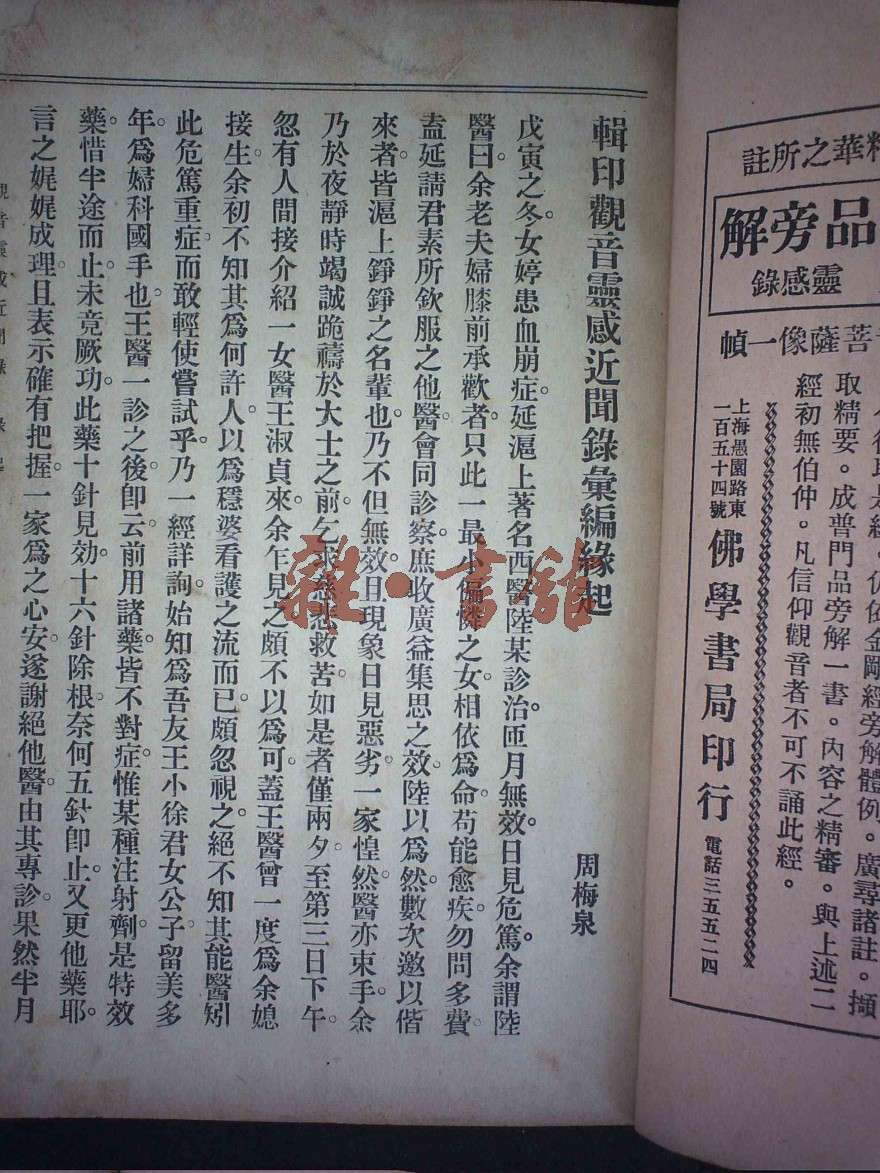 精華之所註
品旁解
靈感錄
菩薩像一幀
是經。仿依金剛經旁解體例。廣尋諸註。擷
取精要。成普門品旁解一書。內容之精審。與上述二
經初無伯仲。凡信仰觀音者不可不誦此經。
上海愚園路東
一百五十四號
佛學書局印行
電話三五五二四
輯印觀音靈感近聞錄彙編緣起
周梅泉
戊寅之冬。女婷患血崩症。延滬上著名西醫陸某診治。匝月無效。日見危篤。余謂陸
醫曰。余老夫婦膝前承歡者。只此一最小偏憐之女。相依爲命。苟能愈疾。勿問多費。
盍延請君素所欽服之他醫會同診察。庶收廣益集思之效。陸以爲然。數次邀以偕
來者。皆滬上錚錚之名輩也。乃不但無效。且現象日見惡劣。一家惶然。醫亦束手。余
乃於夜靜時竭誠跪禱於大士之前。乞求慈悲救苦。如是者僅兩夕。至第三日下午。
忽有人間接介紹一女醫王淑貞來。余乍見之。頗不以爲可。蓋王醫曾一度爲余媳
接生。余初不知其爲何許人。以爲穩婆看護之流而已。頗忽視之。絕不知其能醫。矧
此危篤重症。而敢輕使嘗試乎。乃一經詳詢。始知爲吾友王小徐君女公子。留美多
年。爲婦科國手也。王醫一診之後。卽云。前用諸藥。皆不對症。惟某種注射劑。是特效
藥。惜半途而止。未竟厥功。此藥十針見効。十六針除根。奈何五針卽止。又更他藥耶。
言之娓娓成理。且表示確有把握。一家爲之心安。遂謝絕他醫。由其專診。果然半月
觀音靈感近聞錄 緣起
雜·書館